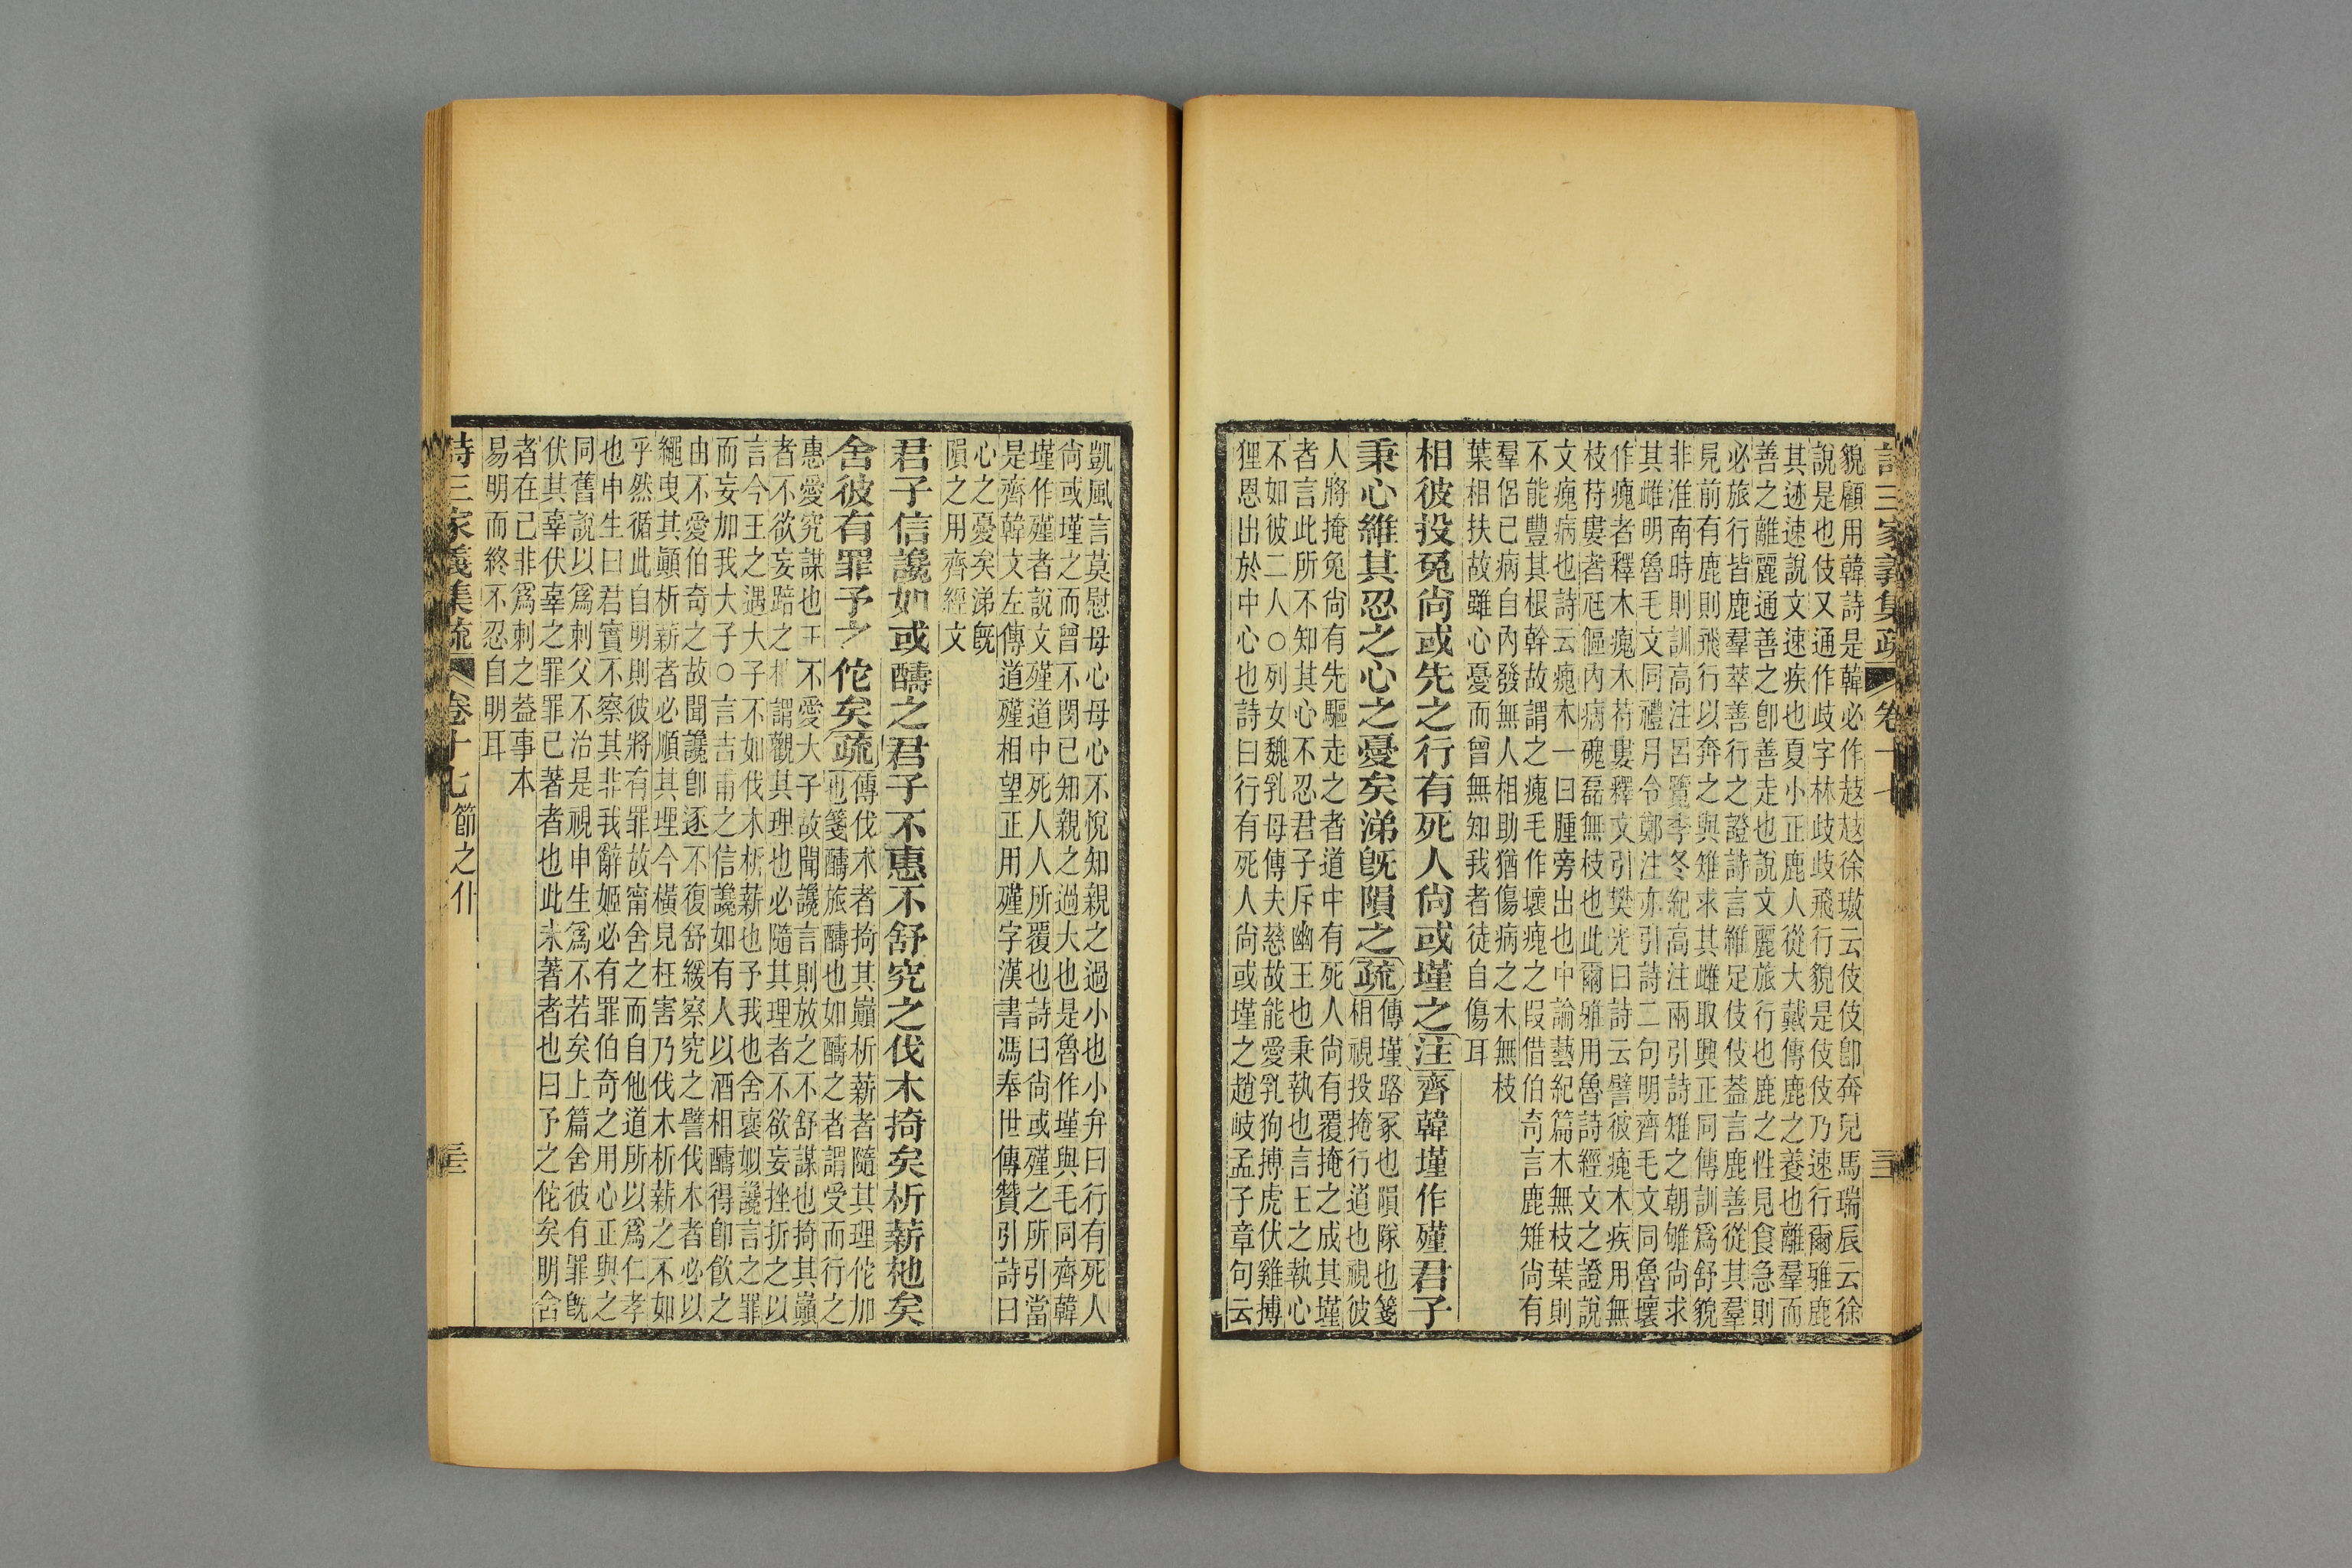 詩三家義集疏 卷十七 三十二
貌顧用韓詩是韓必作越越徐璈云伎伎卽奔皃馬瑞辰云徐
說是也伎又通作歧字林歧歧飛行貌是伎伎乃速行爾雅鹿
其迹速說文速疾也夏小正鹿人從大戴傳鹿之養也離羣而
善之離麗通善之卽善走也說文麗旅行也鹿之性見食急則
必旅行皆鹿羣萃善行之證詩言維足伎伎葢言鹿善從其羣
見前有鹿則飛行以奔之與雉求其雌取興正同傳訓爲舒貌
非淮南時則訓高注呂覽季冬紀高注兩引詩雉之朝雊尙求
其雌明魯毛文同禮月令鄭注亦引詩二句明齊毛文同魯壞
作瘣者釋木瘣木苻婁釋文引樊光曰詩云譬彼瘣木疾用無
枝苻婁者尫傴內病磈磊無枝也此爾雅用魯詩經文之證說
文瘣病也詩云瘣木一曰腫旁出也中論藝紀篇木無枝葉則
不能豐其根幹故謂之瘣毛作壞瘣之叚借伯奇言鹿雉尙有
羣侶已病自內發無人相助猶傷病之木無枝
葉相扶故雖心憂而曾無知我者徒自傷耳
相彼投兔尙或先之行有死人尙或墐之注齊韓墐作殣君子
秉心維其忍之心之憂矣涕旣隕之疏傳墐路冢也隕隊也箋
相視投掩行道也視彼
人將掩兔尙有先驅走之者道中有死人尙有覆掩之成其墐
者言此所不知其心不忍君子斥幽王也秉執也言王之執心
不如彼二人○列女魏乳母傳夫慈故能愛乳狗搏虎伏雞搏
狸恩出於中心也詩曰行有死人尙或墐之趙岐孟子章句云
凱風言莫慰母心母心不悅知親之過小也小弁曰行有死人
尙或墐之而曾不閔已知親之過大也是魯作墐與毛同齊韓
墐作殣者說文殣道中死人人所覆也詩曰尙或殣之所引當
是齊韓文左傳道殣相望正用殣字漢書馮奉世傳贊引詩曰
心之憂矣涕旣
隕之用齊經文
君子信讒如或醻之君子不惠不舒究之伐木掎矣析薪杝矣
舍彼有罪予之佗矣疏傳伐木者掎其巔析薪者隨其理佗加
也箋醻旅醻也如醻之者謂受而行之
惠愛究謀也王不愛大子故聞讒言則放之不舒謀也掎其巔
者不欲妄踣之謂觀其理也必隨其理者不欲妄挫折之以
言今王之遇大子不如伐木析薪也予我也舍襃姒讒言之罪
而妄加我大子○言吉甫之信讒如有人以酒相醻得卽飮之
由不愛伯奇之故聞讒卽逐不復舒緩察究之譬伐木者必以
繩曳其顚析薪者必順其理今橫見枉害乃伐木析薪之不如
乎然循此自明則彼將有罪故甯舍之而自他道所以爲仁孝
也申生曰君實不察其非我辭姬必有罪伯奇之用心正與之
同舊說以爲刺父不治是視申生爲不若矣上篇舍彼有罪旣
伏其辜伏辜之罪罪已著者也此未著者也曰予之佗矣明舍
者在己非爲刺之葢事本
易明而終不忍自明耳
詩三家義集疏 卷十七 節之什 三十三